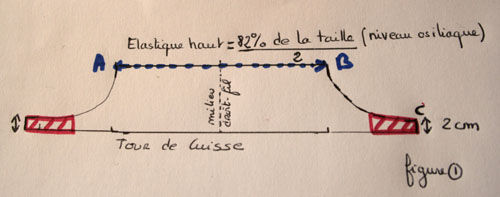 Elastique haut = 82% de la taille (niveau os iliaque)
A
2
B
milieu
droit-fil
C
2 cm
Tour de Cuisse
figure ①